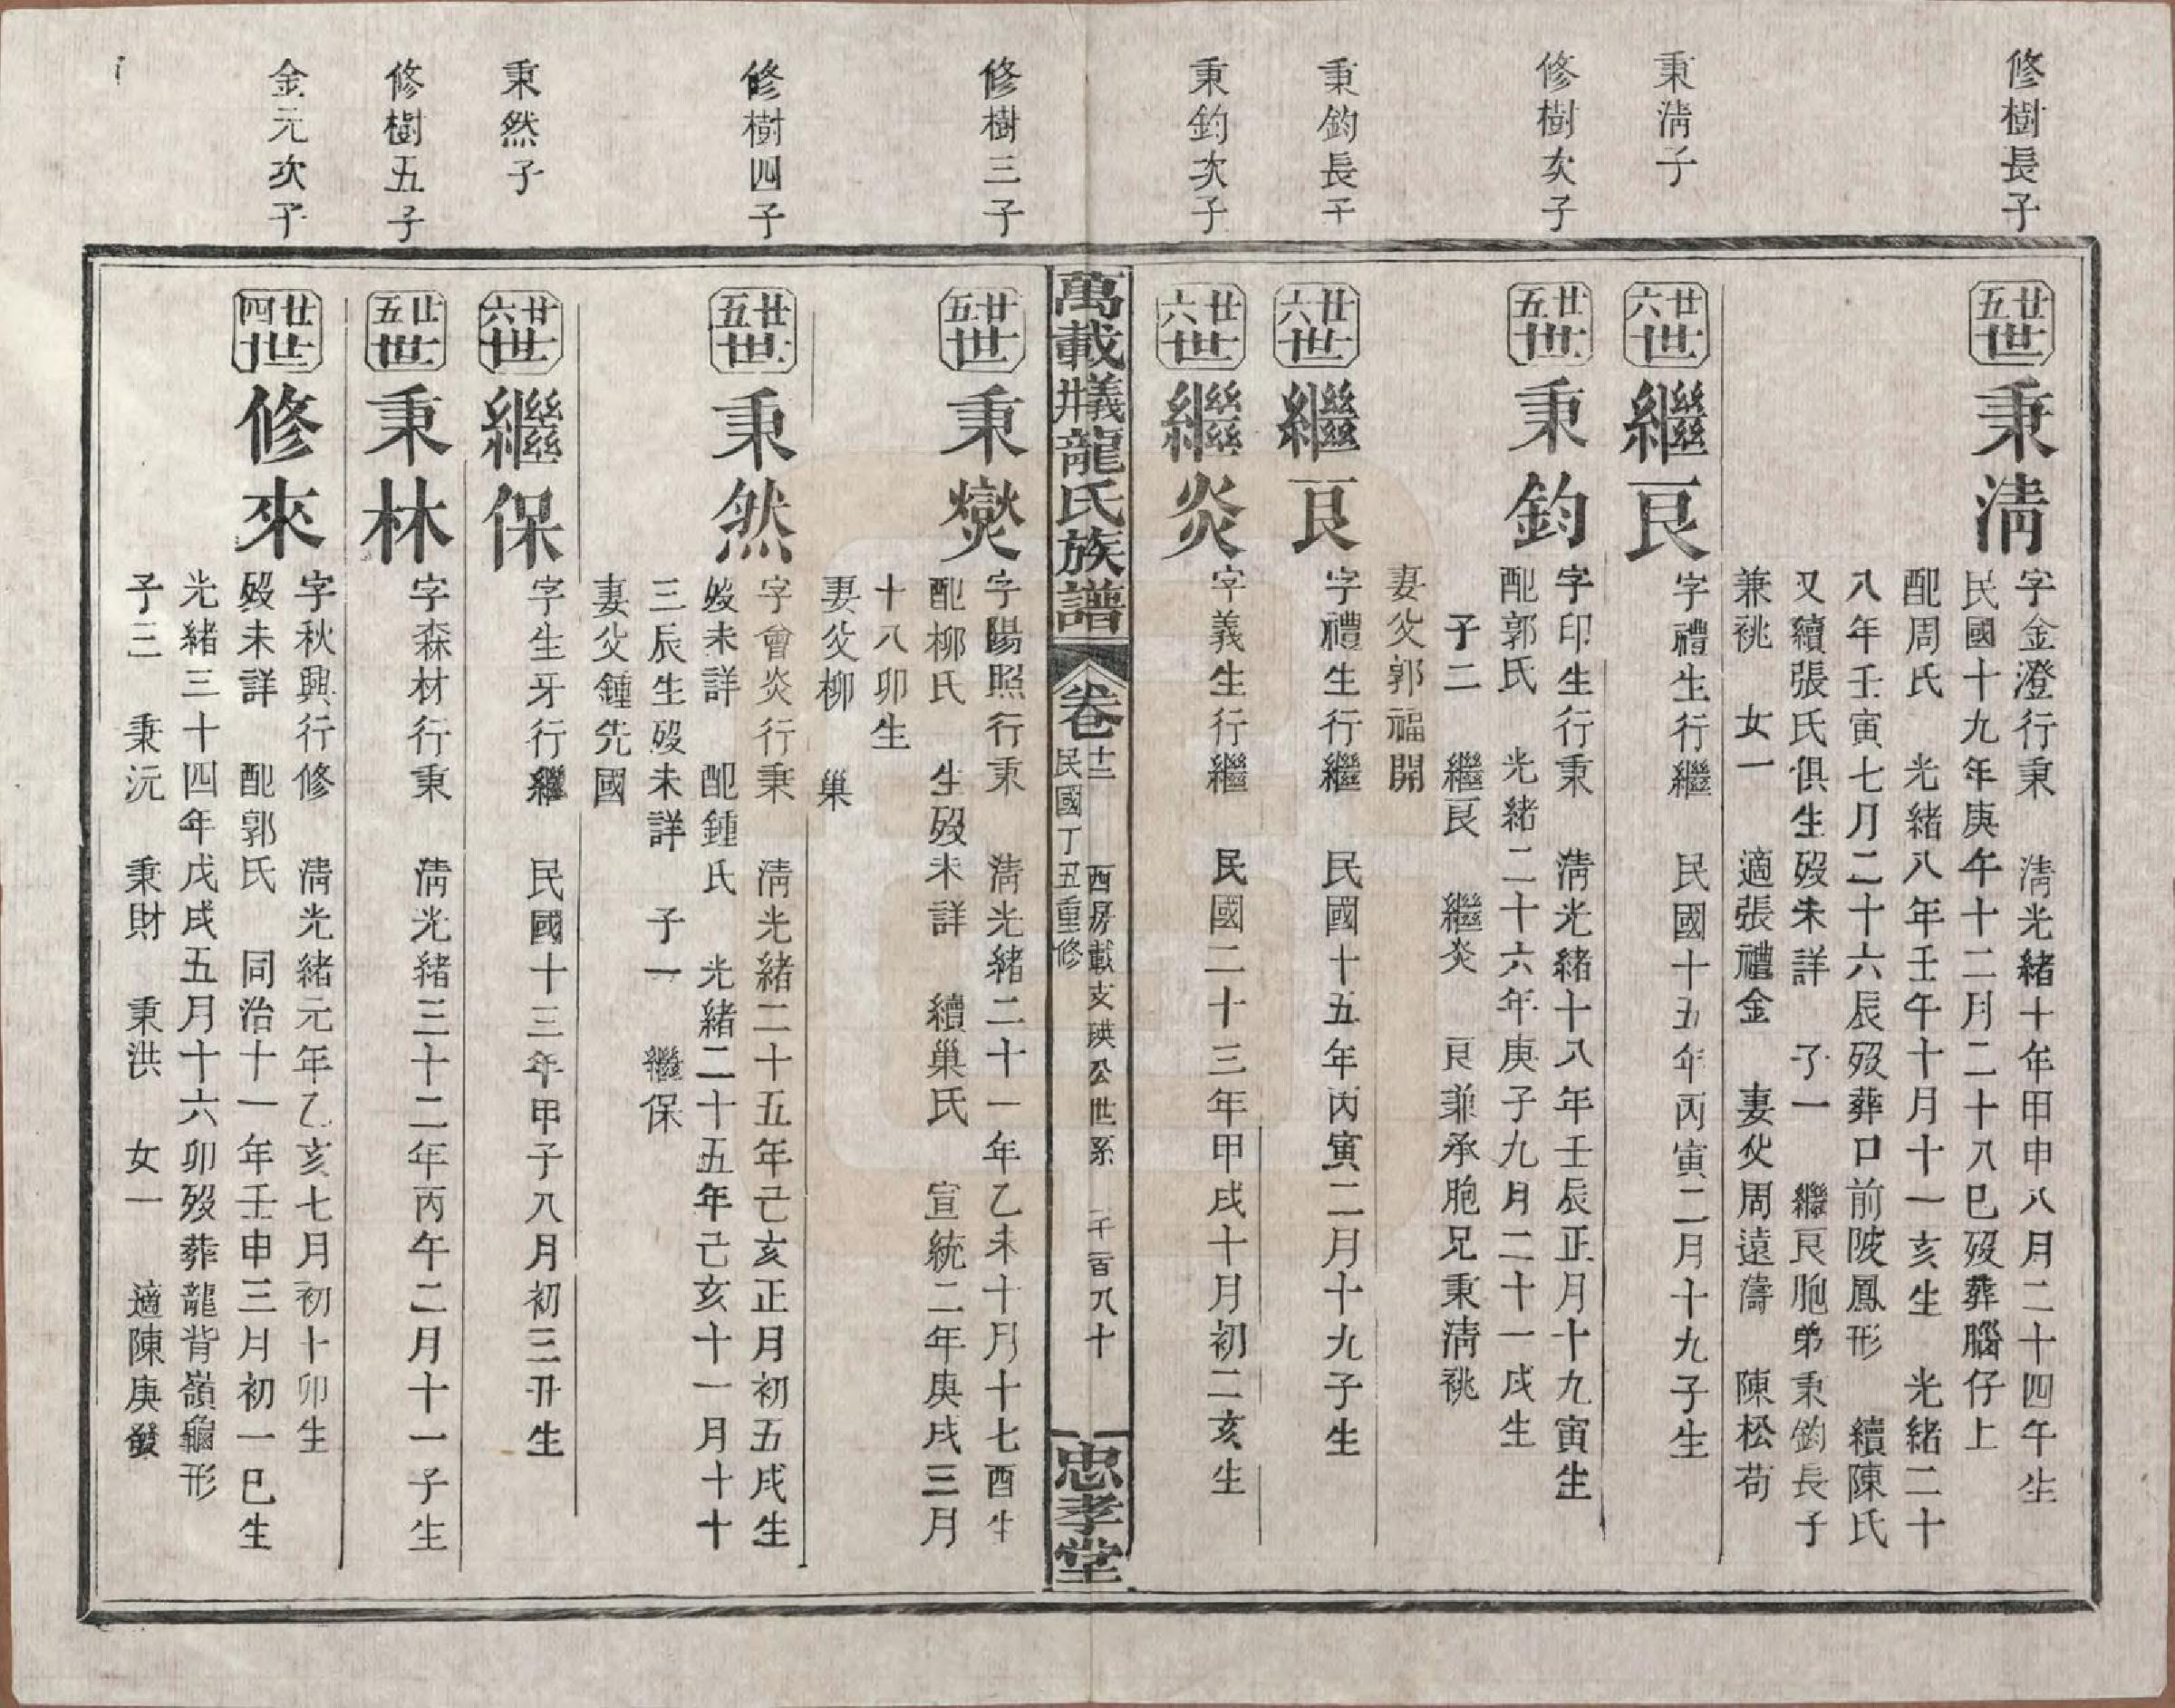 修樹長子
廿五世 秉淸
字金澄行秉 淸光緒十年甲申八月二十四午生
民國十九年庚午十二月二十八巳歿葬腦仔上
配周氏 光緒八年壬午十月十一亥生 光緒二十
八年壬寅七月二十六辰歿葬口前陂鳳形 續陳氏
又續張氏俱生歿未詳 子一 繼艮胞弟秉鈞長子
兼祧 女一 適張禮金 妻父周遠濤 陳松苟
秉淸子
廿六世 繼艮
字禮生行繼 民國十五年丙寅二月十九子生
修樹次子
廿五世 秉鈞
字印生行秉 淸光緒十八年壬辰正月十九寅生
配郭氏 光緒二十六年庚子九月二十一戌生
子二 繼艮 繼炎 艮兼承胞兄秉淸祧
妻父郭福開
秉鈞長子
廿六世 繼艮
字禮生行繼 民國十五年丙寅二月十九子生
秉鈞次子
廿六世 繼炎
字義生行繼 民國二十三年甲戌十月初二亥生
萬載牂義龍氏族譜 卷十二 民國丁丑重修 西房載支珙公世系 一千一百八十 忠孝堂
修樹三子
廿五世 秉爕
字陽照行秉 淸光緒二十一年乙未十月十七酉生
配柳氏 生歿未詳 續巢氏 宣統二年庚戌三月
十八卯生
妻父柳 巢
修樹四子
廿五世 秉然
字曾炎行秉 淸光緒二十五年己亥正月初五戌生
歿未詳 配鍾氏 光緒二十五年己亥十一月十十
三辰生歿未詳 子一 繼保
妻父鍾先國
秉然子
廿六世 繼保
字生牙行繼 民國十三年甲子八月初三丑生
修樹五子
廿五世 秉林
字森材行秉 淸光緒三十二年丙午二月十一子生
金元次子
廿四世 修來
字秋興行修 淸光緒元年乙亥七月初十卯生
歿未詳 配郭氏 同治十一年壬申三月初一巳生
光緒三十四年戊戌五月十六卯歿葬龍背嶺龜形
子三 秉沅 秉財 秉洪 女一 適陳庚發